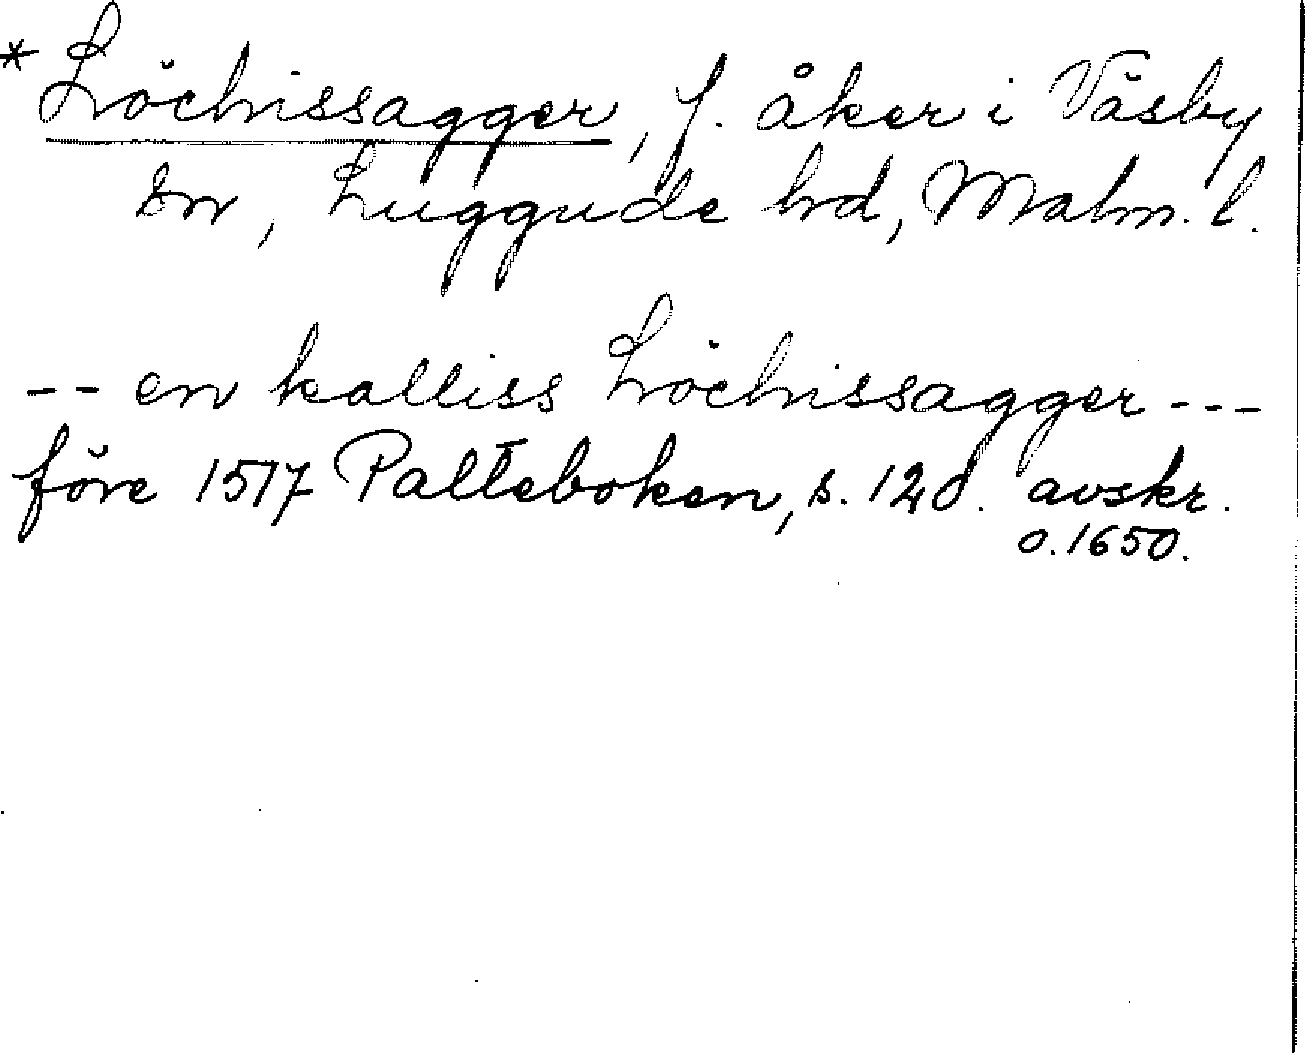 *Löchrissagger, f. åker i Väsby
sn, Luggude hrd, Malm. l.
-- en kalliss Löchrissagger ---
före 1517 Palteboken, s. 120. avskr.
o. 1650.